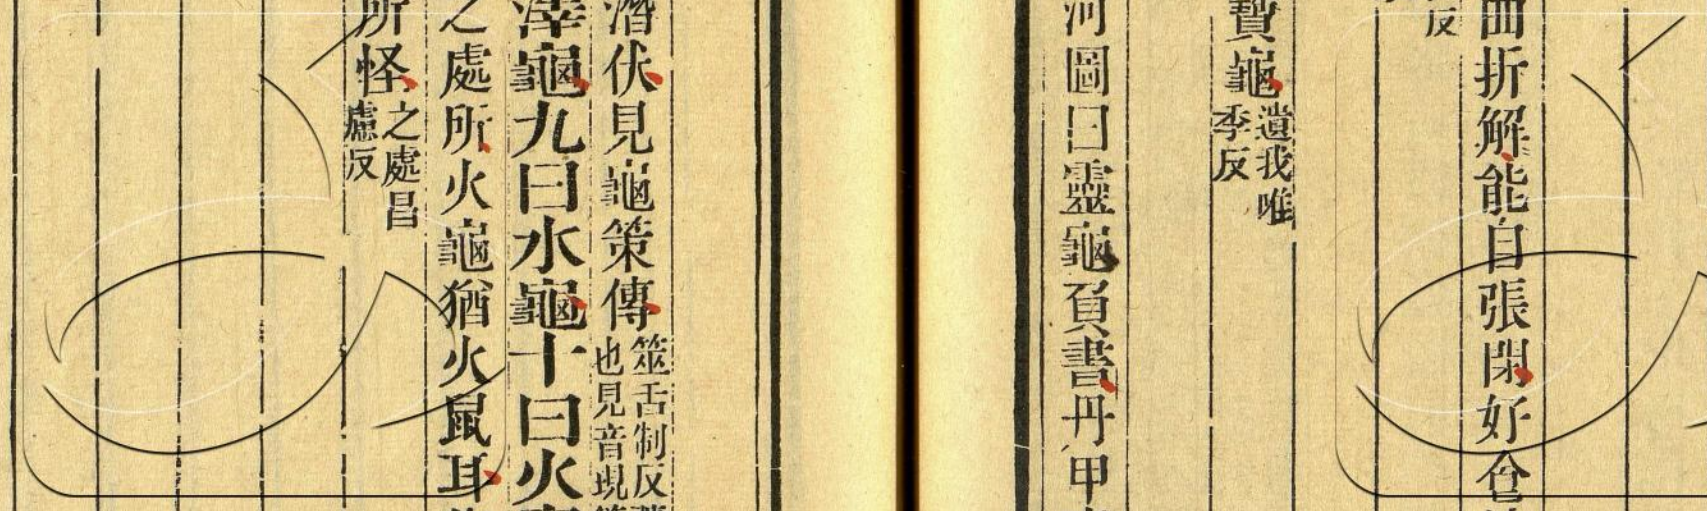 曲折解能自張閉好食
反
寶龜
遺我唯
季反
河圖曰靈龜負書丹甲
潛伏見龜策傳
筮舌制反
也見音現
澤龜九曰水龜十曰火
之處所火龜猶火鼠耳
所怪
之處昌
慮反